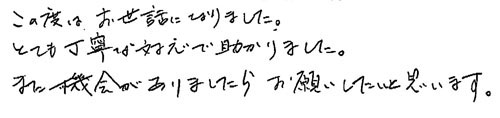 この度は、お世話になりました。
とても丁寧な対応で助かりました。
また機会がありましたら お願いしたいと思います。